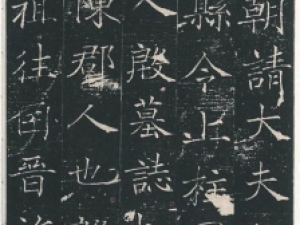 朝請大夫
縣令上柱
殷墓誌
陳郡人也
祖往晉